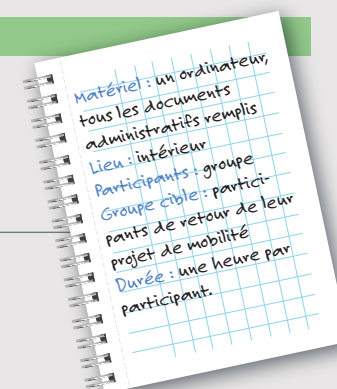 Matériel : un ordinateur,
tous les documents
administratifs remplis
Lieu : intérieur
Participants : groupe
Groupe cible : partici-
pants de retour de leur
projet de mobilité
Durée : une heure par
participant.